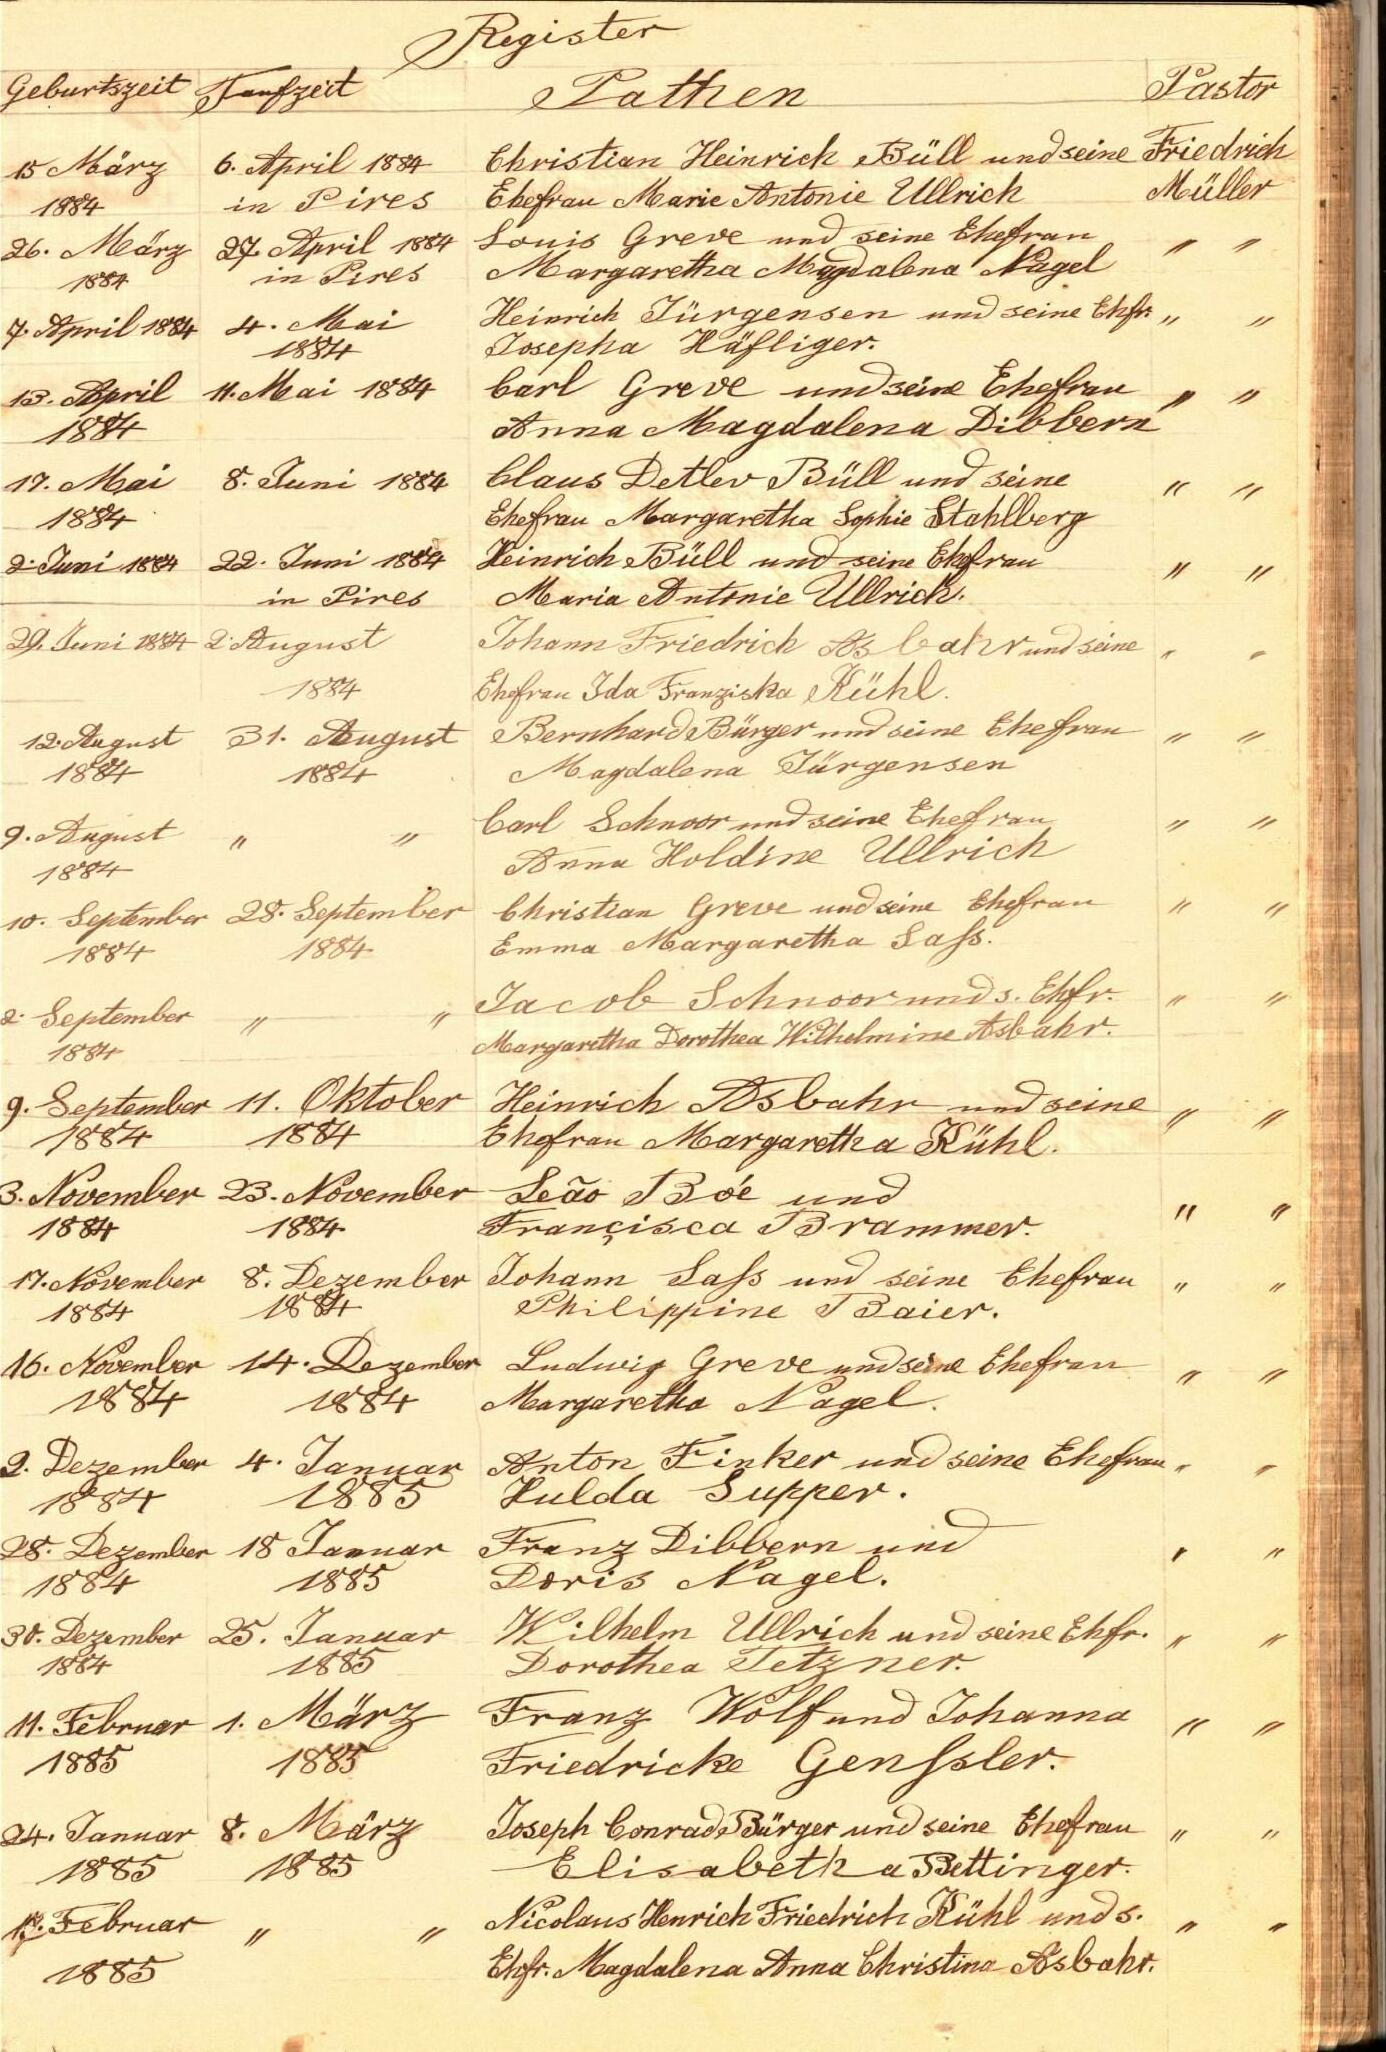 Register
Geburtszeit Taufzeit Pathen Pastor
15 März 6. April 1884 Christian Heinrich Büll und seine Friedrich
1884 in Pires Ehefrau Marie Antonie Ullrich Müller
26. März 27. April 1884 Louis Greve und seine Ehefrau " "
1884 in Pires Margaretha Magdalena Nagel
7. April 1884 4. Mai Heinrich Jürgensen und seine Ehfr. " "
1884 Josepha Häfliger.
13. April 11. Mai 1884 Carl Greve und seine Ehefrau " "
1884 Anna Magdalena Dibbern
17. Mai 8. Juni 1884 Claus Detlev Büll und seine " "
1884 Ehefrau Margaretha Sophie Stahlberg
2. Juni 1884 22. Juni 1884 Heinrich Büll und seine Ehefrau " "
in Pires Maria Antonie Ullrich.
29. Juni 1884 2. August Johann Friedrich Asbahr und seine " "
1884 Ehefrau Ida Franziska Kühl.
12. August 31. August Bernhard Bürger und seine Ehefrau " "
1884 1884 Magdalena Jürgensen
9. August " " Carl Schnoor und seine Ehefrau " "
1884 Anna Holdine Ullrich
10. September 28. September Christian Greve und seine Ehefrau " "
1884 1884 Emma Margaretha Saſs.
2. September " " Jacob Schnoor und s. Ehfr. " "
1884 Margaretha Dorothea Wilhelmine Asbahr.
9. September 11. Oktober Heinrich Asbahr und seine " "
1884 1884 Ehefrau Margaretha Kühl.
3. November 23. November Leão Boé und " "
1884 1884 Françisca Brammer.
17. November 8. Dezember Johann Saſs und seine Ehefrau " "
1884 1884 Philippine Baier.
16. November 14. Dezember Ludwig Greve und seine Ehefrau " "
1884 1884 Margaretha Nagel.
2. Dezember 4. Januar Anton Finker und seine Ehefrau " "
1884 1885 Hulda Supper.
28. Dezember 18 Januar Franz Dibbern und " "
1884 1885 Doris Nagel.
30. Dezember 25. Januar Wilhelm Ullrich und seine Ehfr. " "
1884 1885 Dorothea Tetzner.
11. Februar 1. März Franz Wolf und Johanna " "
1885 1885 Friedricke Genſsler.
24. Januar 8. März Joseph Conrad Bürger und seine Ehefrau " "
1885 1885 Elisabetha Bettinger.
Februar " " Nicolaus Henrich Friedrich Kühl und s. " "
1885 Ehfr. Magdalena Anna Christina Asbahr.